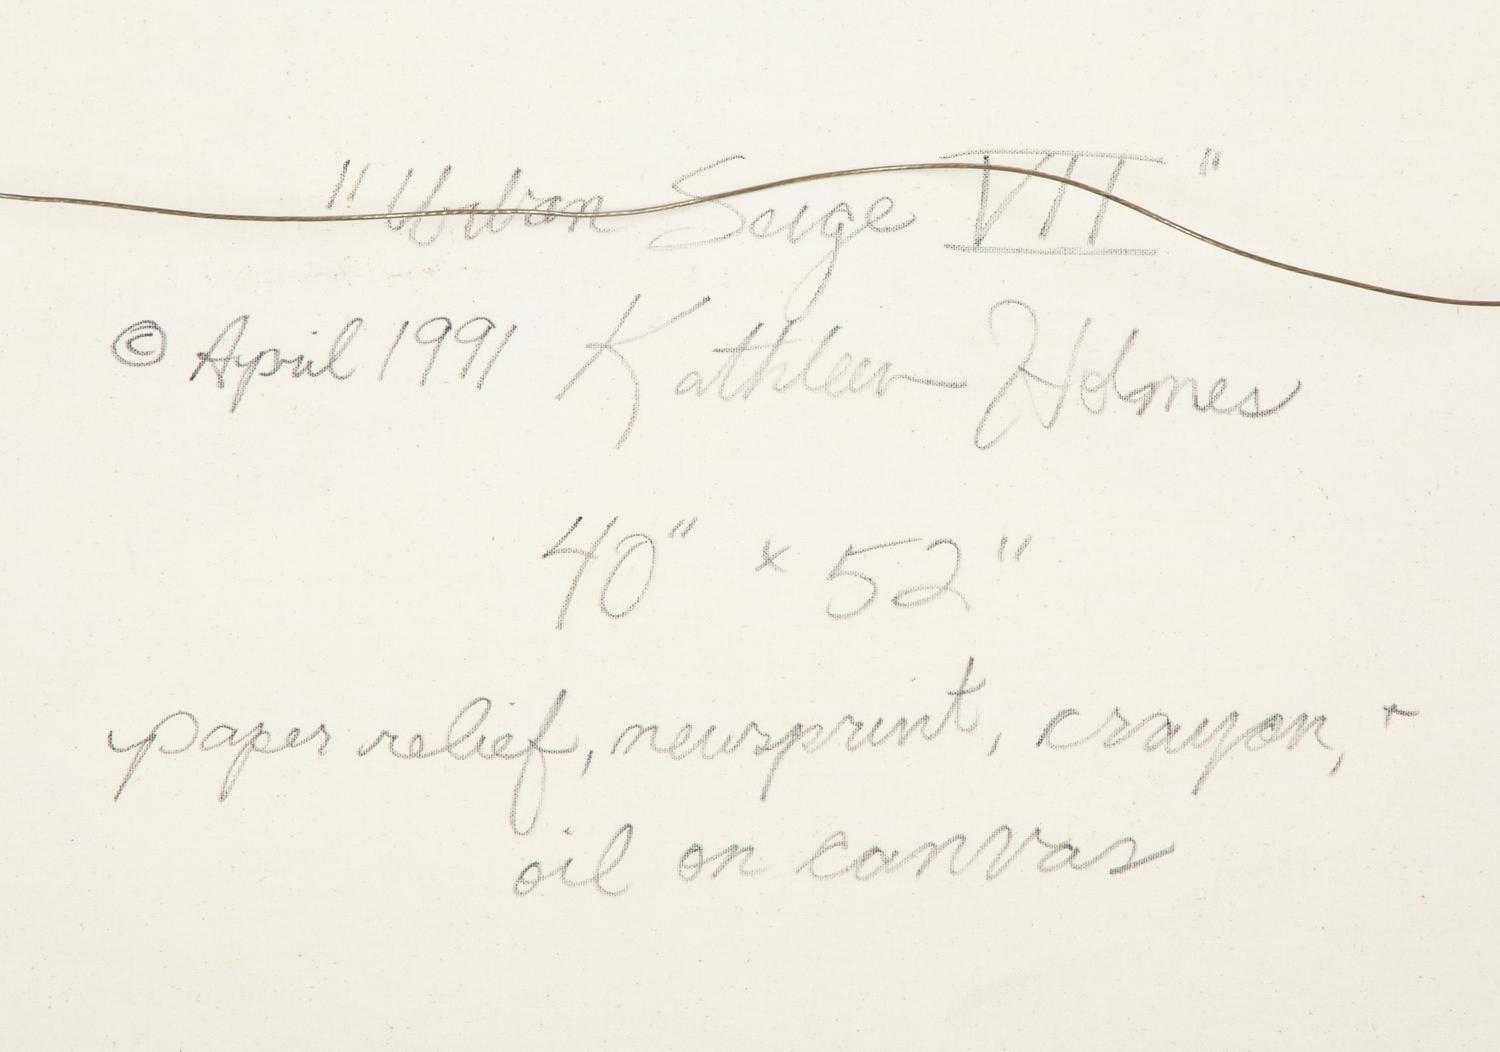 "Urban Seige VII"
© April 1991 Kathleen Holmes
40" x 52"
paper relief, newsprint, crayon, +
oil on canvas